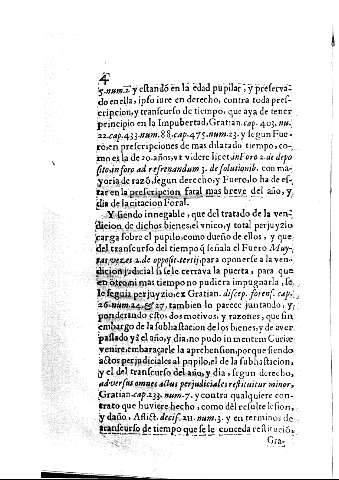 4
5. num. 2 y estando en la edad pupilar, y preserva-
do en ella, ipso iure en derecho, contra toda pres-
cripcion, y transcurso de tiempo, que aya de tener
principio en la Impubertad, Gratian. cap. 403. nu.
22. cap. 433. num. 88. cap. 475. num. 23. y segun Fue-
ro, en prescripciones de mas dilatado tiempo, co-
mo es la de 20. años, vt videre licet in Foro 2. de depo
sito, in foro ad refrenandum 3. de solutionib. con ma-
yoria de razõ, segun derecho, y Fuero, lo ha de es-
tar en la prescripcion fatal mas breve del año, y
dia de la citacion Foral.
Y siendo innegable, que del tratado de la ven-
dicion de dichos bienes, el vnico, y total perjuyzio
carga sobre el pupilo, como dueño de ellos, y que
del transcurso del tiempo q̃ señala el Fuero Muy-
tas vezes 2. de opposit. tertij. para oponerse a la ven-
dicion judicial se le cerrava la puerta, para que
en otro ni mas tiempo no pudiera impugnarla, se
le seguia perjuyzio, ex Gratian. discep. forens. cap.
26. num. 24. & 27. tambien lo parece juntando, y
ponderando estos dos motivos, y razones, que sin
embargo de la subhastacion de los bienes, y de aver
passado yà el año, y dia, no pudo in mentem Curiæ
venire, embaraçarle la aprehension, porque siendo
actos perjudiciales al pupilo, el de la subhastacion,
y el del transcurso del año, y dia, segun derecho,
adversus omnes actus perjudiciales restituitur minor,
Gratian. cap. 233. num. 7. y contra qualquiere con-
trato que huviere hecho, como dèl resulte lesion,
y daño, Aflict. decis. 211. num. 3. y en terminos de
transcurso de tiempo que se le conceda restituciõ,
Gra-